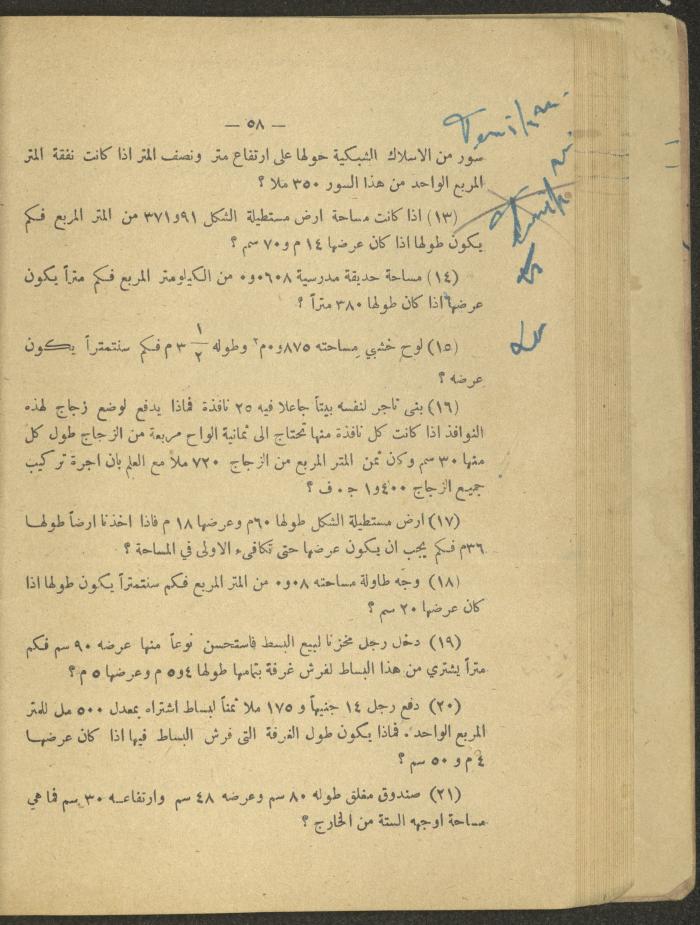 — ٥٨ —
سور من الاسلاك الشبكية حولها على ارتفاع متر ونصف المتر اذا كانت نفقة المتر
المربع الواحد من هذا السور ٣٥٠ ملا ؟
(١٣) اذا كانت مساحة ارض مستطيلة الشكل ٣٧١و٩١ من المتر المربع فكم
يكون طولها اذا كان عرضها ١٤ م و ٧٠ سم ؟
(١٤) مساحة حديقة مدرسية ٠و٠٦٠٨ من الكيلومتر المربع فكم متراً يكون
عرضها اذا كان طولها ٣٨٠ متراً ؟
(١٥) لوح خشبي مساحته ٠و٨٧٥م٢ وطوله ٣ ١/٢ م فكم سنتمتراً يكون
عرضه ؟
(١٦) بنى تاجر لنفسه بيتاً جاعلا فيه ٢٥ نافذة فماذا يدفع لوضع زجاج لهذه
النوافذ اذا كانت كل نافذة منها تحتاج الى ثمانية الواح مربعة من الزجاج طول كل
منها ٣٠ سم وكان ثمن المتر المربع من الزجاج ٧٢٠ ملاً مع العلم بان اجرة تركيب
جميع الزجاج ١و٤٠٠ ج . ف ؟
(١٧) ارض مستطيلة الشكل طولها ٦٠م وعرضها ١٨ م فاذا اخذنا ارضاً طولها
٣٦م فكم يجب ان يكون عرضها حتى تكافىء الاولى في المساحة ؟
(١٨) وجه طاولة مساحته ٠و٠٨ من المتر المربع فكم سنتمتراً يكون طولها اذا
كان عرضها ٢٠ سم ؟
(١٩) دخل رجل مخزنا لبيع البسط فاستحسن نوعاً منها عرضه ٩٠ سم فكم
متراً يشتري من هذا البساط لفرش غرفة بتمامها طولها ٥و٤ م وعرضها ٥ م ؟
(٢٠) دفع رجل ١٤ جنيهاً و ١٧٥ ملا ثمناً لبساط اشتراه بمعدل ٥٠٠ مل للمتر
المربع الواحد . فماذا يكون طول الغرفة التى فرش البساط فيها اذا كان عرضها
٤ م و ٥٠ سم ؟
(٢١) صندوق مغلق طوله ٨٠ سم وعرضه ٤٨ سم وارتفاعه ٣٠ سم فما هي
مساحة اوجهه الستة من الخارج ؟